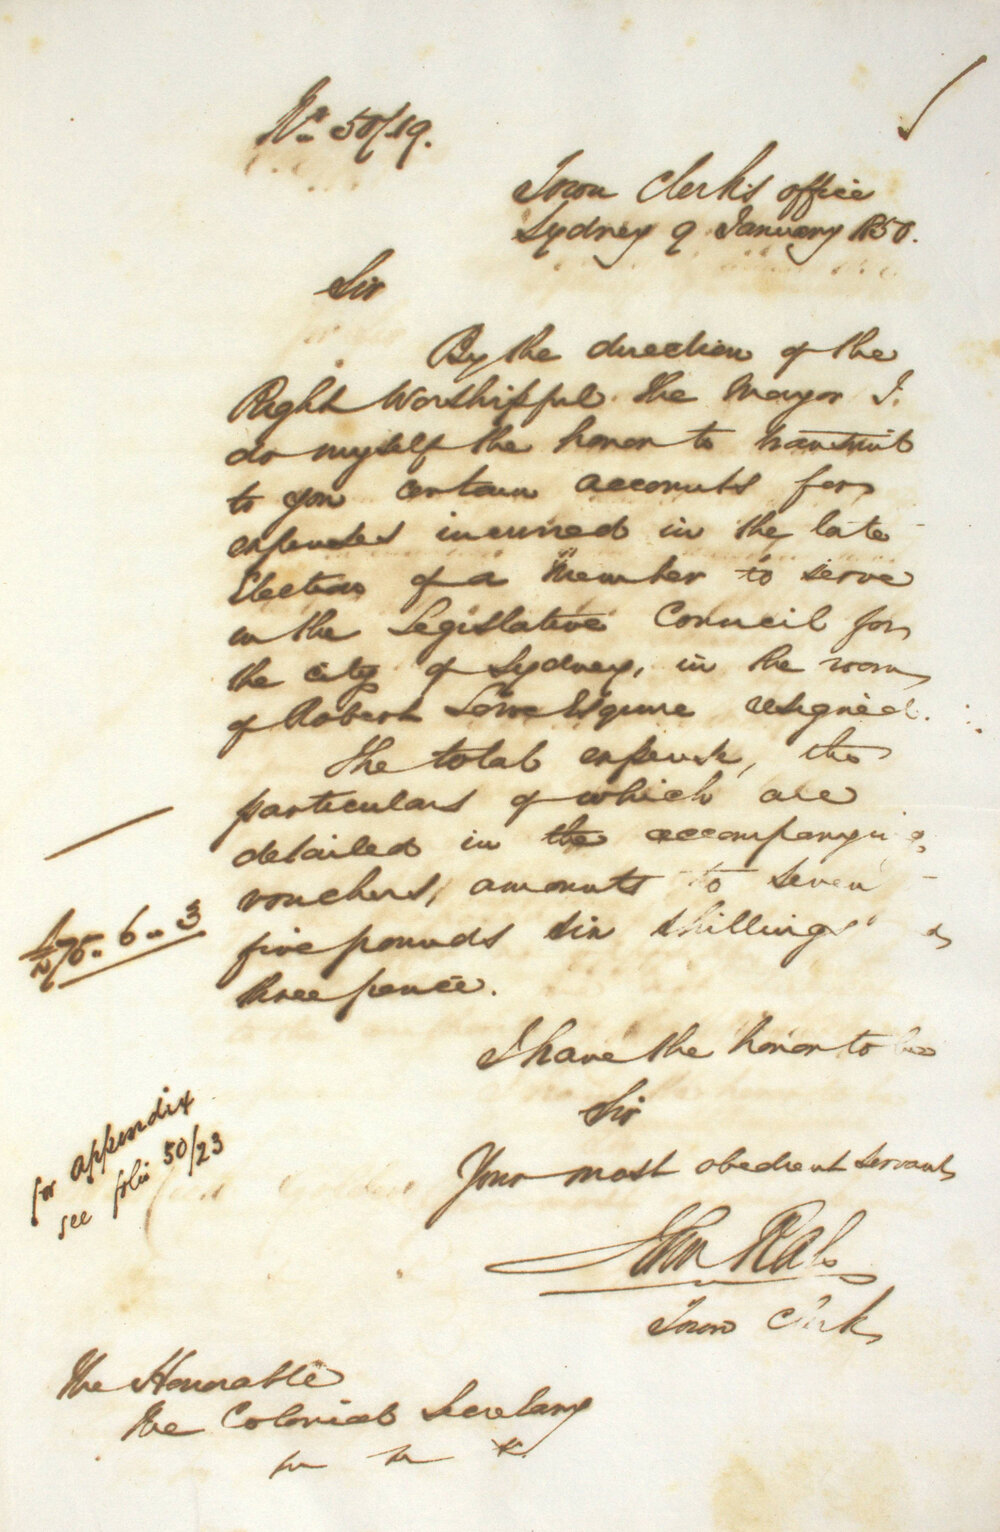 No. 50/19.
Town Clerk's office
Sydney 9 January 1850.
Sir
By the direction of the
Right Worshipful the Mayor I.
do myself the honor to transmit
to you certain accounts for
expenses incurred in the late
Election of a Member to serve
in the Legislative Council for
the city of Sydney, in the room
of Robert Lowe Esquire resigned.
The total expense, the
particulars of which are
detailed in the accompanying
vouchers, amounts to seven
five pounds six shillings &
three pence.
£75. 6. 3
I have the honor to be
Sir
Your most obedient servant
John Rae
Town Clerk
for appendix
see folio 50/23
The Honorable
The Colonial Secretary